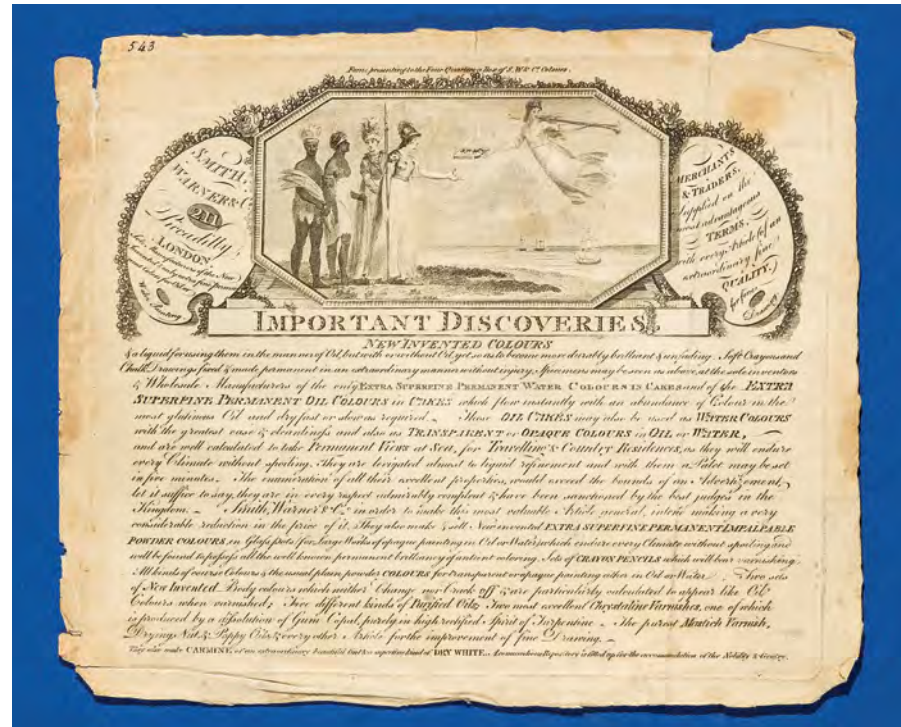 543
Fame presenting to the Four Quarters a Box of S. W. & Co. Colours.
SMITH,
WARNER & Co.
211
Piccadilly
LONDON
MERCHANTS
& TRADERS,
Supplied on the
most advantageous
TERMS,
with every Article (of an
extraordinary fine
QUALITY,)
for fine
Drawing
IMPORTANT DISCOVERIES.
NEW INVENTED COLOURS
& a liquid for using them in the manner of Oil, but with or without Oil, yet so as to become more durably brilliant & unfading. Soft Crayons and
Chalk Drawings fixed & made permanent in an extraordinary manner without injury, Specimens may be seen as above, at the sole inventors
& Wholesale Manufacturers of the only EXTRA SUPERFINE PERMANENT WATER COLOURS IN CAKES and of the EXTRA
SUPERFINE PERMANENT OIL COLOURS in CAKES which flow instantly with an abundance of Colour in the
most glutinous Oil and dry fast or slow as required. These OIL CAKES may also be used as WATER COLOURS
with the greatest ease & cleanliness and also as TRANSPARENT or OPAQUE COLOURS in OIL or WATER,
and are well calculated to take Permanent Views at Sea, for Travelling & Country Residences, as they will endure
every Climate without spoiling, they are levigated almost to liquid refinement and with them a Palet may be set
in five minutes. The enumeration of all their excellent properties, would exceed the bounds of an Advertizement,
let it suffice to say, they are in every respect admirably compleat & have been sanctioned by the best judges in the
Kingdom. Smith, Warner & Co. in order to make this most valuable Article general, intend making a very
considerable reduction in the price of it. They also make & sell New invented EXTRA SUPERFINE PERMANENT IMPALPABLE
POWDER COLOURS, in Glass Pots for Large Works of opaque painting in Oil or Water, which endure every Climate without spoiling and
will be found to possess all the well known permanent brilliancy of antient coloring. Sets of CRAYON PENCILS which will bear varnishing.
All kinds of course Colours & the usual plain powder COLOURS for transparent or opaque painting either in Oil or Water. Two sets
of New Invented Body colours which neither Change nor Crack off & are particularly calculated to appear like Oil
Colours when varnished; Five different kinds of Purified Oils; Two most excellent Chrystaline Varnishes, one of which
is produced by a dissolution of Gum Copal, purely in high rectified Spirit of Turpentine. The purest Mastich Varnish,
Drying, Nut, & Poppy Oils, & every other Article for the improvement of fine Drawing.
They also make CARMINE, of an extraordinary beautiful tint & a superior kind of DRY WHITE. A commodious Repository is fitted up for the accommodation of the Nobility & Gentry.